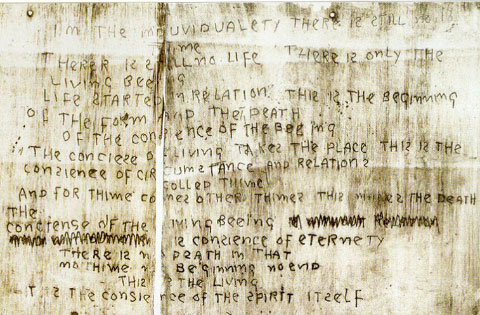 I'M THE VIDUALETY THERE IS STILL NO
TIME
THERE IS NO LIFE THERE IS ONLY THE
LIVING BEEING
LIFE STARTED IN RELATION. THIS IS THE BEGINNING
OF THE FORM AND THE DEATH
OF THE CONCIENCE OF THE BEEING
THE CONCIESE OF LIVING TAKES THE PLACE THIS IS THE
CONZIENCE OF CIRCUMSTANCE AND RELATIONS
COLLED THIME
AND FOR THIME COMES OTHER THIMES THIS MAKES THE DEATH
THE
CONCIENSE OF THE LIVING BEEING
IS CONCIENCE OF ETERNETY
THERE IS NO DEATH IN THAT
NO THIME NO BEGINNING NO END
THIS IS THE LIVING
IT IS THE CONSIENCE OF THE SPIRIT ITSELF